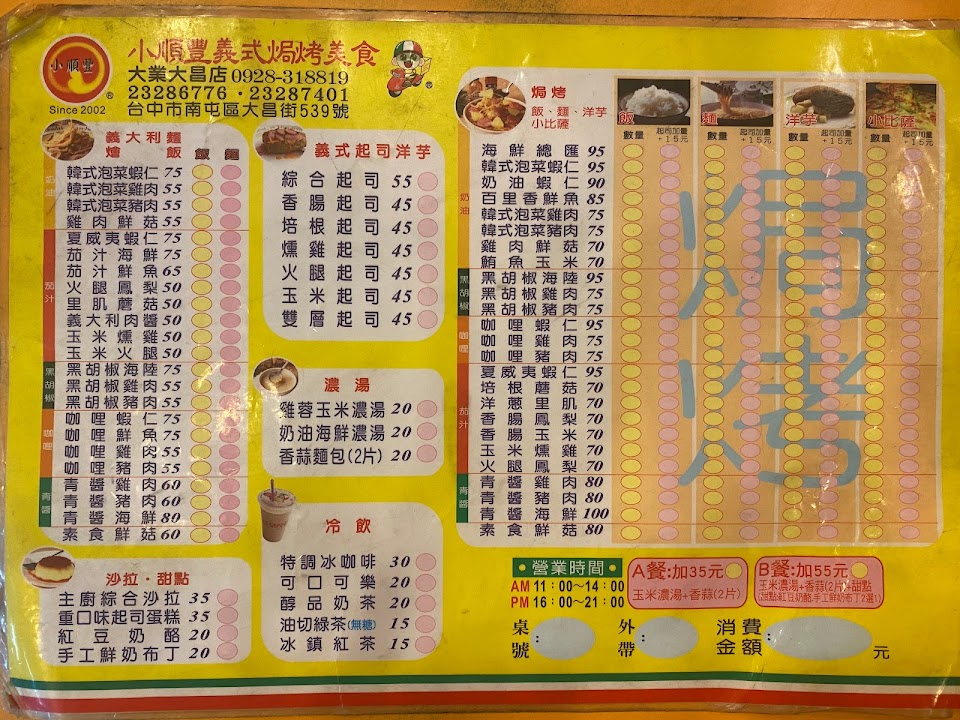 小順豐
®
Since 2002
小順豐義式焗烤美食
®
大業大昌店 0928-318819
23286776・23287401
台中市南屯區大昌街539號
義大利麵
燴飯 飯 麵
奶油
韓式泡菜蝦仁 75
韓式泡菜雞肉 55
韓式泡菜豬肉 55
雞肉鮮菇 55
茄汁
夏威夷蝦仁 75
茄汁海鮮 75
茄汁鮮魚 65
火腿鳳梨 50
里肌蘑菇 50
義大利肉醬 50
玉米燻雞 50
玉米火腿 50
黑胡椒
黑胡椒海陸 75
黑胡椒雞肉 55
黑胡椒豬肉 55
咖哩
咖哩蝦仁 75
咖哩鮮魚 75
咖哩雞肉 55
咖哩豬肉 55
青醬
青醬雞肉 60
青醬豬肉 60
青醬海鮮 80
素食鮮菇 60
沙拉・甜點
主廚綜合沙拉 35
重口味起司蛋糕 35
紅豆奶酪 20
手工鮮奶布丁 20
義式起司洋芋
綜合起司 55
香腸起司 45
培根起司 45
燻雞起司 45
火腿起司 45
玉米起司 45
雙層起司 45
濃湯
雞蓉玉米濃湯 20
奶油海鮮濃湯 20
香蒜麵包(2片) 20
冷飲
特調冰咖啡 30
可口可樂 20
醇品奶茶 20
油切綠茶(無糖) 15
冰鎮紅茶 15
焗烤
飯、麵、洋芋
小比薩
飯 麵 洋芋 小比薩
數量 起司加量+15元 數量 起司加量+15元 數量 起司加量+15元 數量 起司加量+15元
奶油
海鮮總匯 95
韓式泡菜蝦仁 95
奶油蝦仁 90
百里香鮮魚 85
韓式泡菜雞肉 75
韓式泡菜豬肉 75
雞肉鮮菇 70
鮪魚玉米 70
黑胡椒
黑胡椒海陸 95
黑胡椒雞肉 75
黑胡椒豬肉 75
咖哩
咖哩蝦仁 95
咖哩雞肉 75
咖哩豬肉 75
茄汁
夏威夷蝦仁 95
培根蘑菇 70
洋蔥里肌 70
香腸鳳梨 70
香腸玉米 70
玉米燻雞 70
火腿鳳梨 70
青醬
青醬雞肉 80
青醬豬肉 80
青醬海鮮 100
素食鮮菇 80
焗烤
營業時間
AM 11：00～14：00
PM 16：00～21：00
A餐:加35元
玉米濃湯+香蒜(2片)
B餐:加55元
玉米濃湯+香蒜(2片)+甜點
(甜點:紅豆奶酪.手工鮮奶布丁2選1)
桌號： 外帶： 消費金額： 元